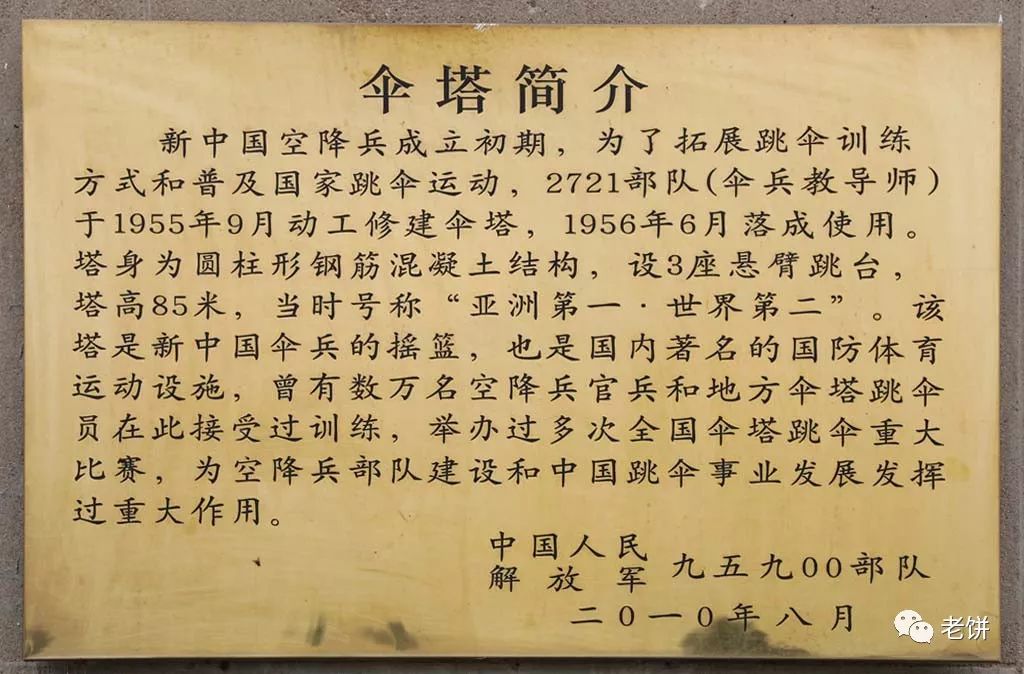 伞塔简介
新中国空降兵成立初期，为了拓展跳伞训练
方式和普及国家跳伞运动，2721部队(伞兵教导师)
于1955年9月动工修建伞塔，1956年6月落成使用。
塔身为圆柱形钢筋混凝土结构，设3座悬臂跳台，
塔高85米，当时号称“亚洲第一·世界第二”。该
塔是新中国伞兵的摇篮，也是国内著名的国防体育
运动设施，曾有数万名空降兵官兵和地方伞塔跳伞
员在此接受过训练，举办过多次全国伞塔跳伞重大
比赛，为空降兵部队建设和中国跳伞事业发展发挥
过重大作用。
中国人民
解放军 九五九00部队
二0一0年八月
老饼